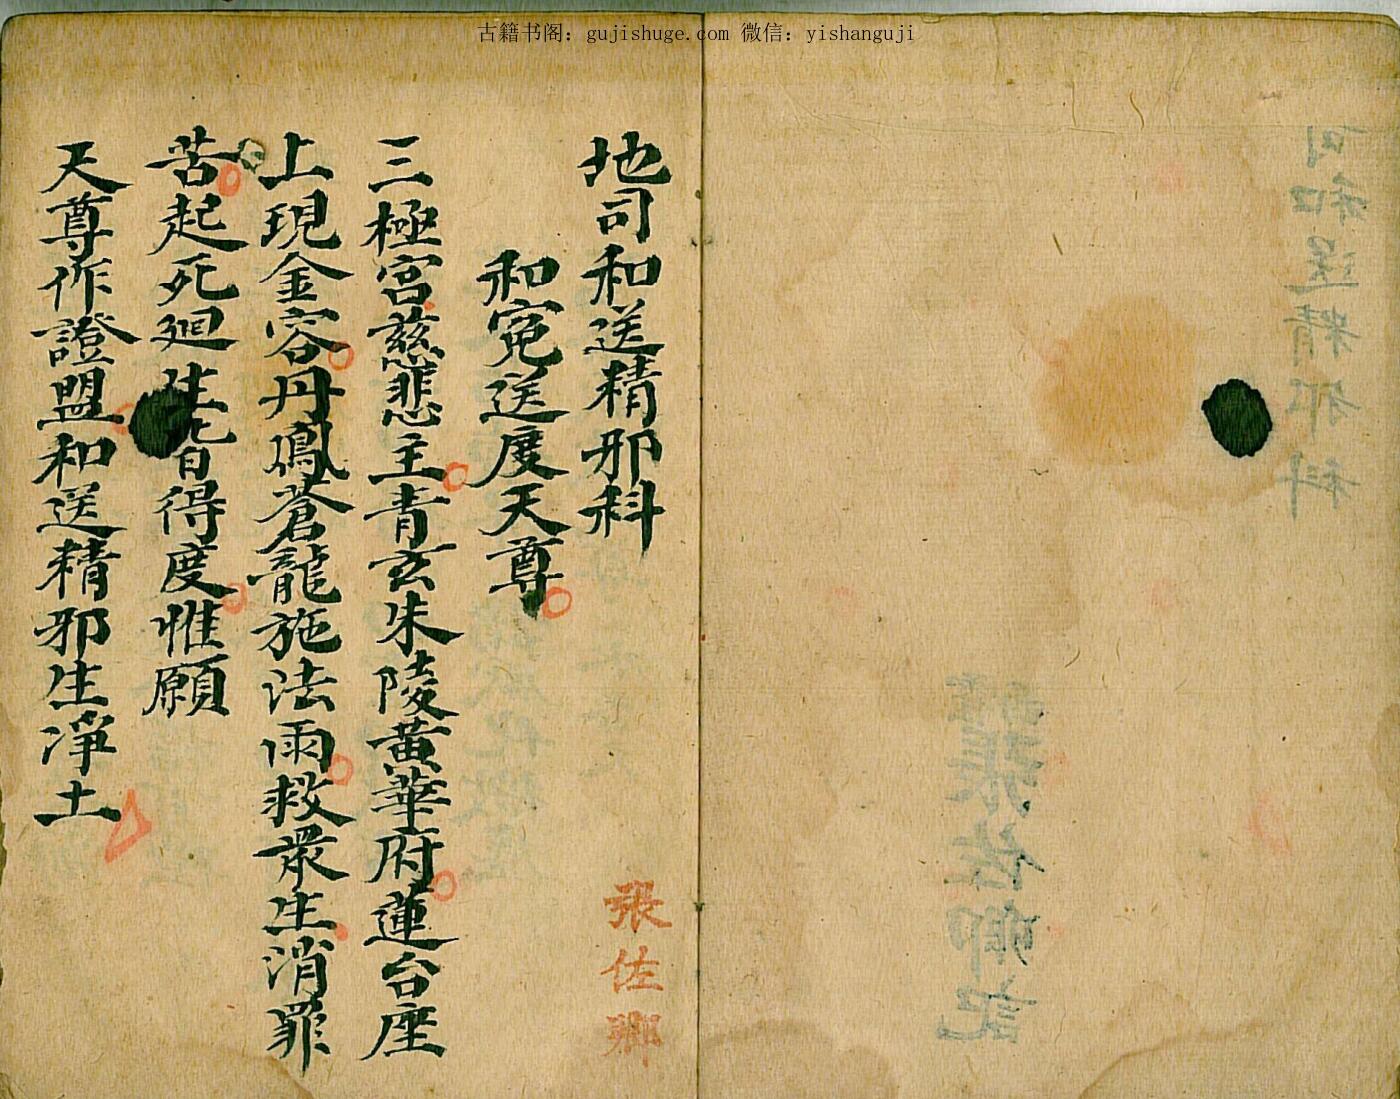 古籍书阁：gujishuge.com 微信：yishanguji
地司和送精邪科
張佐卿
和冤送度天尊
三極宮慈悲主青玄朱陵黃華府蓮台座
上現金容丹鳳蒼龍施法雨救眾生消罪
苦起死廻生皆得度惟願
天尊作證盟和送精邪生淨土
司和送精邪科
張佐卿記